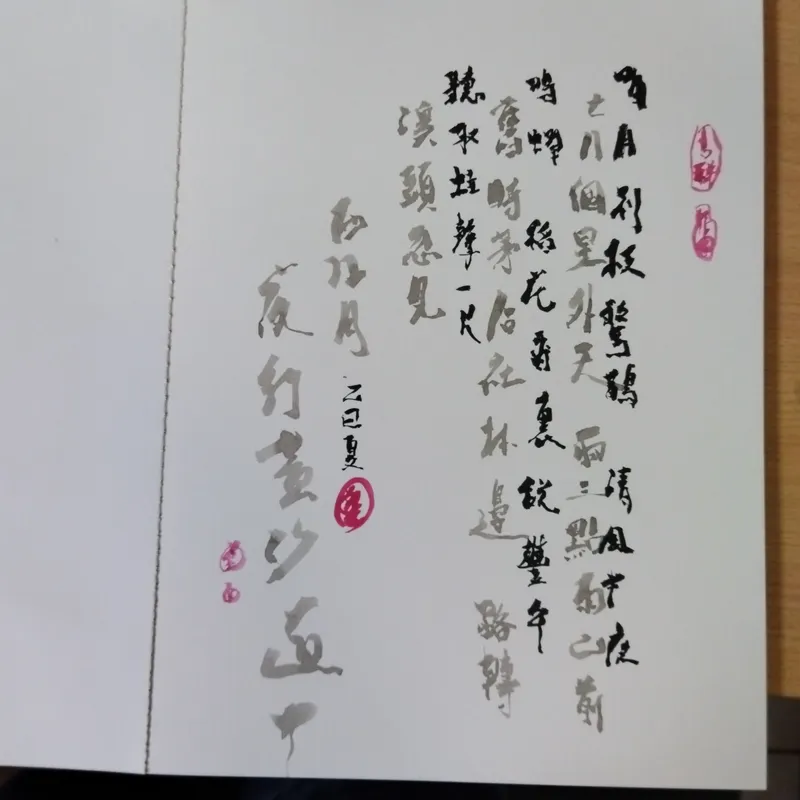 明月別枝驚鵲 清風半夜
七八個星外天 兩三點雨山前
鳴蟬 稻花香裏說豐年
舊時茅店社林邊 路轉
聽取蛙聲一片
溪頭忽見
西江月 乙巳夏
夜行黃沙道中